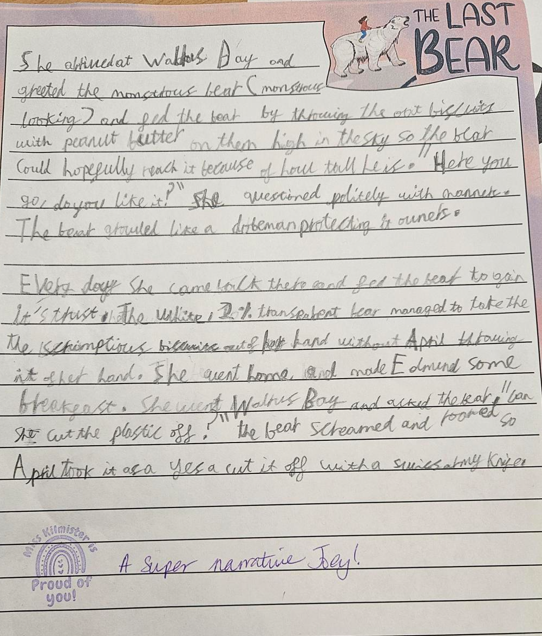 THE LAST
BEAR
She at Walrus Bay and
greeted the monsterous bear (monstrous
looking) and fed the bear by throwing the oat biscuits
with peanut butter on them high in the sky so the bear
Could hopefully reach it because of how tall he is. "Here you
go, do you like it?" She questioned politely with manners.
The bear growled like a dobeman protecting it owners.
Every day She came back there and fed the bear to gain
it's trust. The white, 2% transparent bear managed to take the
the scrumptious out of her hand without April throwing
it of her hand. She went home, and made Edmund some
breakfast. She went Walrus Bay and asked the bear, "can
She cut the plastic off?" the bear screamed and roored so
April took it as a yes a cut it off with a army knife.
Miss Kilmister is
Proud of
you!
A super narrative Joey!